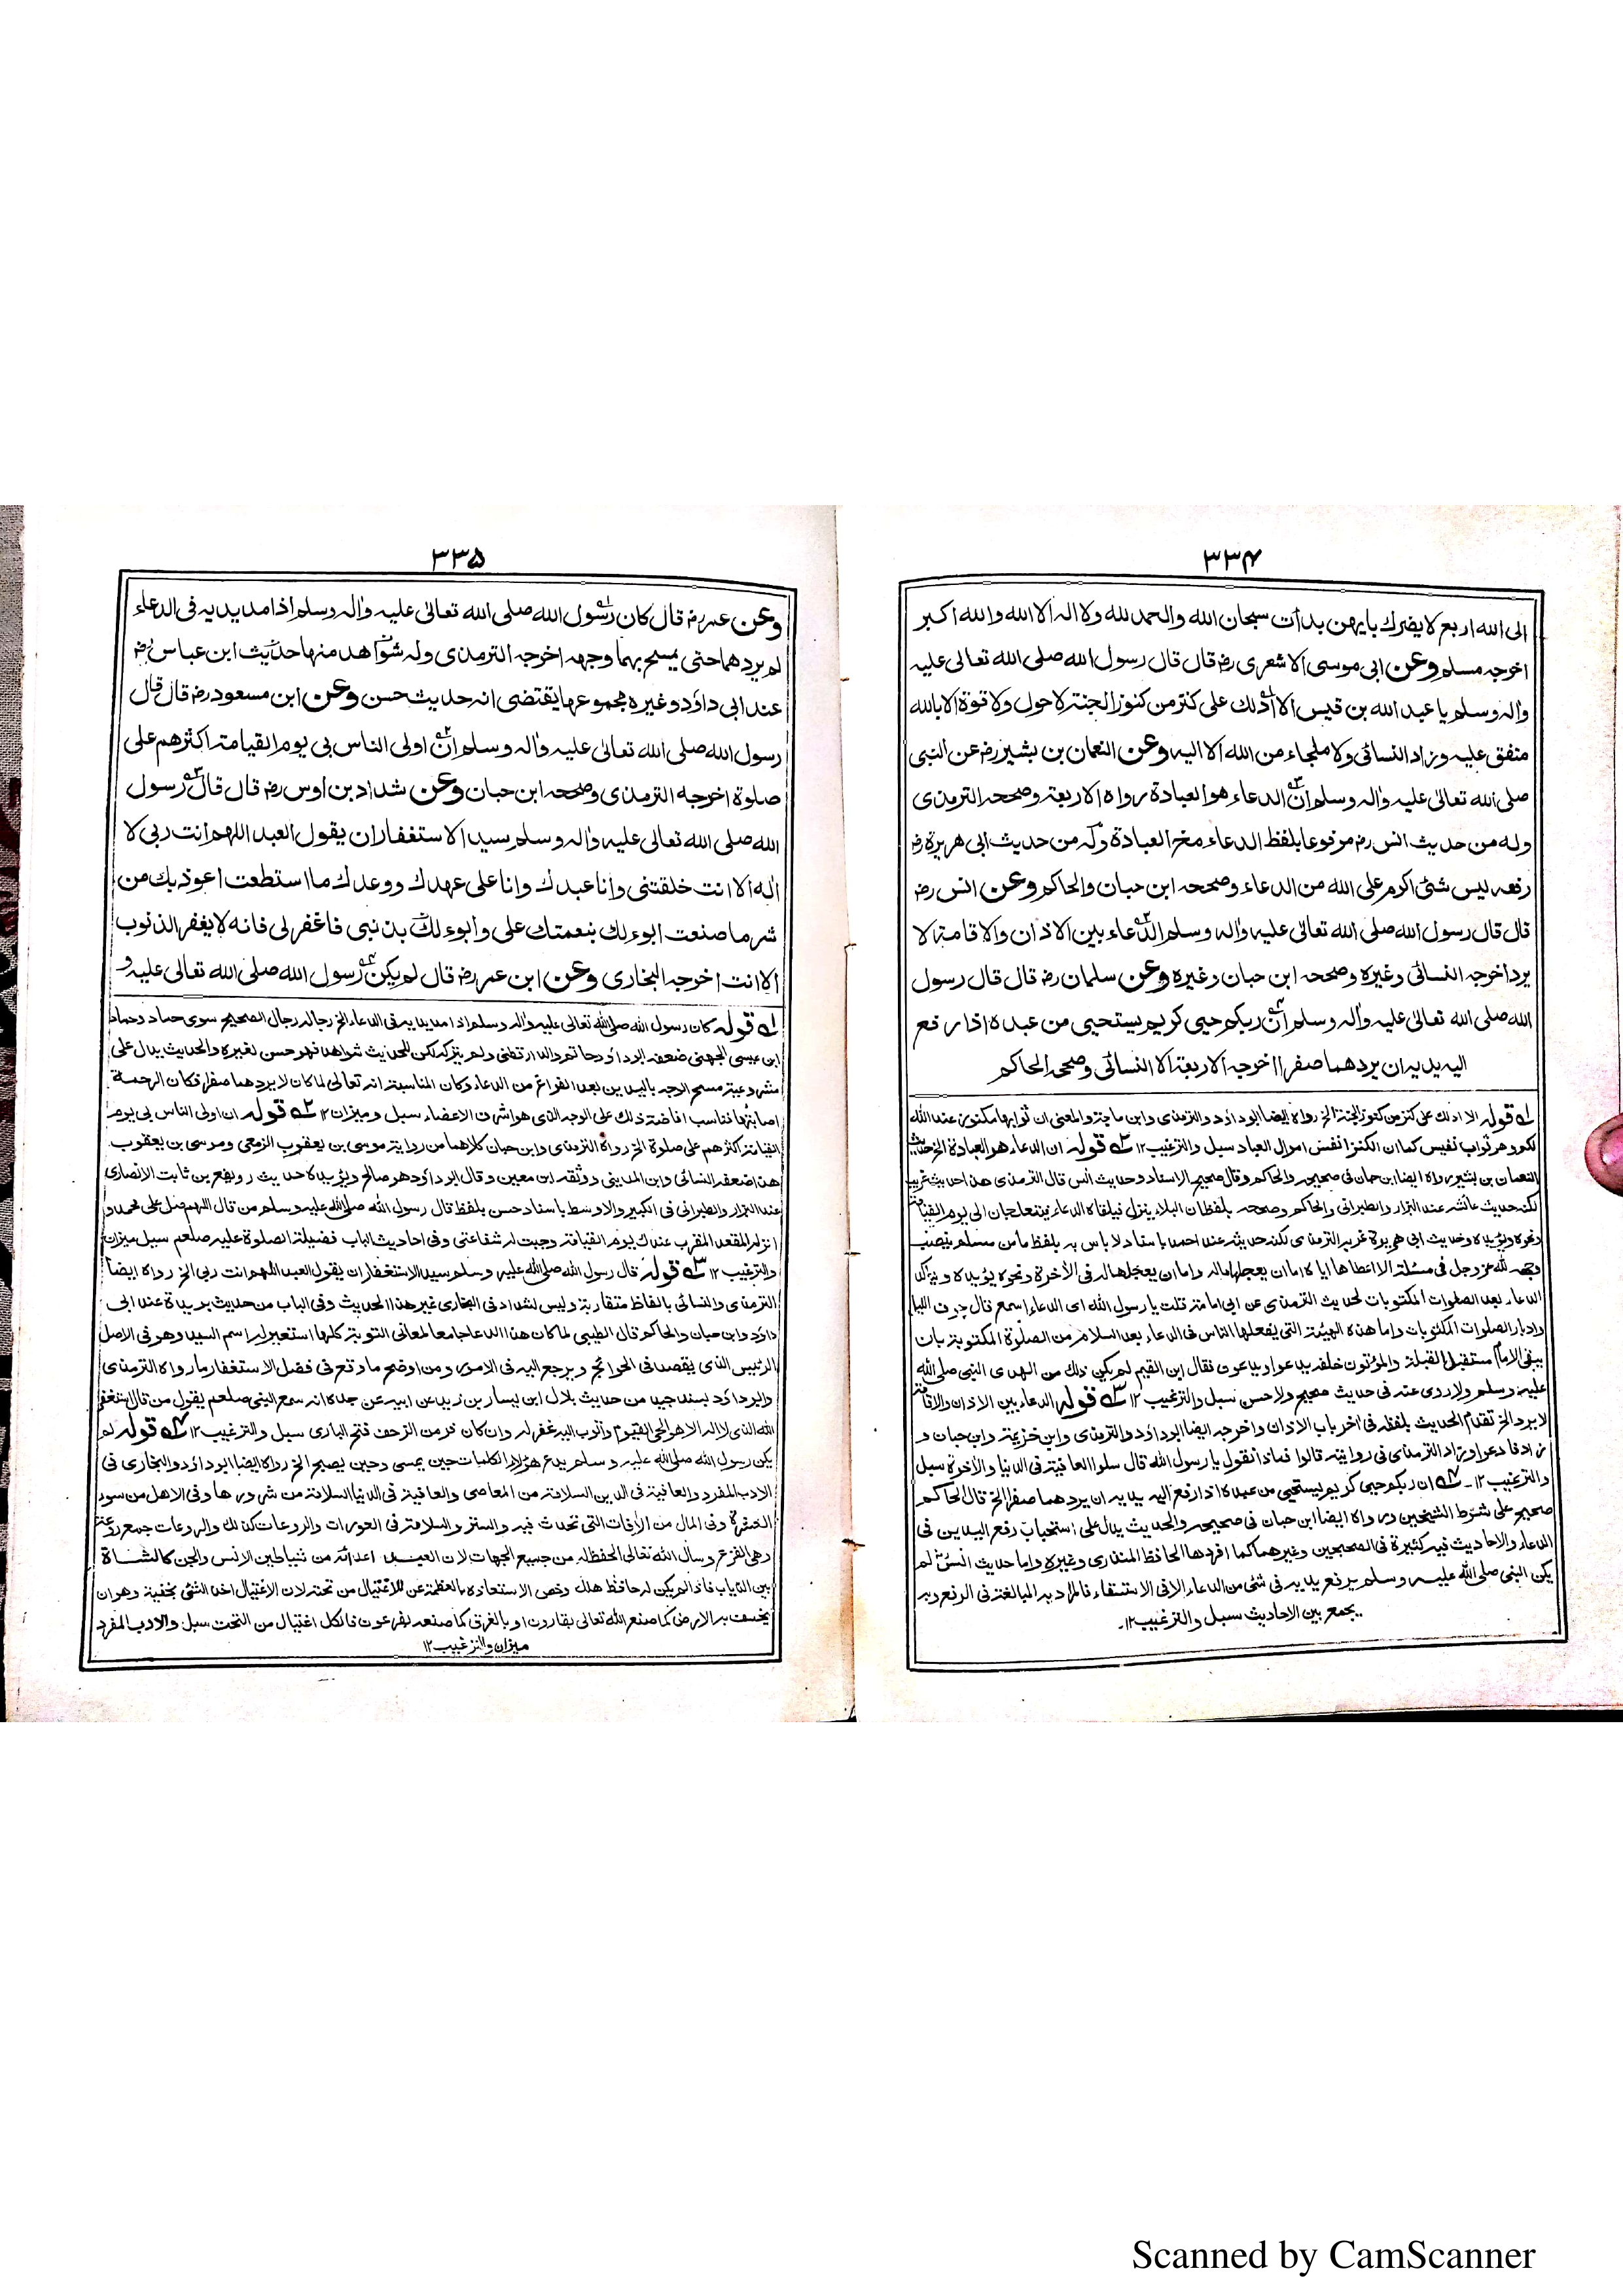 ۳۳۴
الی الله اربع لا یضرك بایهن بدأت سبحان الله والحمد لله ولا اله الا الله والله اکبر
اخرجه مسلم وعن ابی موسی الاشعری رضہ قال قال رسول الله صلی الله تعالیٰ علیه
واٰله وسلم یا عبد الله بن قیس الا ادلك علی کنز من کنوز الجنة لا حول ولا قوة الا بالله
متفق علیه وزاد النسائی ولا ملجاء من الله الا الیه وعن النعمان بن بشیر رضہ عن النبی
صلی الله تعالیٰ علیه واٰله وسلم ان الدعاء هو العبادة رواه الاربعة وصححه الترمذی
وله من حدیث انس رضہ مرفوعا بلفظ الدعاء مخ العبادة وله من حدیث ابی هریرة رضہ
رفعه لیس شئ اکرم علی الله من الدعاء وصححه ابن حبان والحاکم وعن انس رضہ
قال قال رسول الله صلی الله تعالیٰ علیه واٰله وسلم الدعاء بین الاذان والاقامة لا
یرد اخرجه النسائی وغیره وصححه ابن حبان وغیره وعن سلمان رضہ قال قال رسول
الله صلی الله تعالیٰ علیه واٰله وسلم ان ربکم حیی کریم یستحیی من عبده اذا رفع
الیه یدیه ان یردهما صفرا اخرجه الاربعة الا النسائی وصححه الحاکم
۱ قوله الا ادلك علی کنز من کنوز الجنة الخ رواه ایضا ابو داؤد والترمذی وابن ماجة والمعنی ان ثوابها مکنوز عند الله
لکم وهو ثواب نفیس کما ان الکنز انفس اموال العباد سبل والترغیب ۱۲ ۲ قوله ان الدعاء هو العبادة الخ حدیث
النعمان بن بشیر رواه ایضا ابن حبان فی صحیحه والحاکم وقال صحیح الاسناد وحدیث انس قال الترمذی هذا حدیث غریب
لکنه حدیث عائشه عند البزار والطبرانی والحاکم وصححه بلفظ ان البلاء ینزل فیلقاه الدعاء فیتعلجان الی یوم القیامة
ونحوه ویؤیده وحدیث ابی هریرة غربه الترمذی لکنه حدیثه عند احمد باسناد لا باس به بلفظ ما من مسلم ینصب
وجهه لله عز وجل فی مسئلة الا اعطاها ایاه اما ان یعجلها له واما ان یدخرها له فی الاٰخرة ونحوه یؤیده
الدعاء بعد الصلوات المکتوبات لحدیث الترمذی عن ابی امامة قلت یا رسول الله ای الدعاء اسمع قال جوف اللیل
وادبار الصلوات المکتوبات واما هذه الهیئة التی یفعلها الناس فی الدعاء بعد السلام من الصلوٰة المکتوبة بان
یبقی الامام مستقبل القبلة والمؤتمون خلفه یدعو ویدعون فقال ابن القیم لم یکن ذلك من الهدی النبی صلی الله
علیه وسلم ولا روی عنه فی حدیث صحیح ولا حسن سبل والترغیب ۱۲ ۳ قوله الدعاء بین الاذان والاقامة
لا یرد الخ تقدم الحدیث بلفظه فی اٰخر باب الاذان واخرجه ایضا ابو داؤد والترمذی وابن خزیمة وابن حبان و
زاد فادعوا وزاد الترمذی فی روایته قالوا فماذا نقول یا رسول الله قال سلوا العافیة فی الدنیا والاٰخرة سبل
والترغیب ۱۲ ۔ ۴ ان ربکم حیی کریم یستحیی من عبده اذا رفع الیه یدیه ان یردهما صفرا الخ قال الحاکم
صحیح علی شرط الشیخین ورواه ایضا ابن حبان فی صحیحه والحدیث یدل علی استحباب رفع الیدین فی
الدعاء والاحادیث فیه کثیرة فی الصحیحین وغیرهما کما افردها الحافظ المنذری وغیره واما حدیث انس لم
یکن النبی صلی الله علیه وسلم یرفع یدیه فی شئ من الدعاء الا فی الاستسقاء فالمراد به المبالغة فی الرفع وبه
یجمع بین الاحادیث سبل والترغیب ۱۲۔
۳۳۵
وعن عمر رضہ قال کان رسول الله صلی الله تعالیٰ علیه واٰله وسلم اذا مد یدیه فی الدعاء
لم یردهما حتی یمسح بهما وجهه اخرجه الترمذی وله شواهد منها حدیث ابن عباس رضہ
عند ابی داؤد وغیره مجموعها یقتضی انه حدیث حسن وعن ابن مسعود رضہ قال قال
رسول الله صلی الله تعالیٰ علیه واٰله وسلم ان اولی الناس بی یوم القیامة اکثرهم علی
صلوة اخرجه الترمذی وصححه ابن حبان وعن شداد بن اوس رضہ قال قال رسول
الله صلی الله تعالیٰ علیه واٰله وسلم سید الاستغفار ان یقول العبد اللهم انت ربی لا
اله الا انت خلقتنی وانا عبدك وانا علی عهدك ووعدك ما استطعت اعوذ بك من
شر ما صنعت ابوء لك بنعمتك علی وابوء لك بذنبی فاغفر لی فانه لا یغفر الذنوب
الا انت اخرجه البخاری وعن ابن عمر رضہ قال لم یکن رسول الله صلی الله تعالیٰ علیه و
۱ قوله کان رسول الله صلی الله تعالیٰ علیه واٰله وسلم اذا مد یدیه فی الدعاء الخ رجاله رجال الصحیح سوی حماد وحماد
ابن عیسی الجهنی ضعفه ابو داؤد وحاتم والدارقطنی ولم یترکه لکن للحدیث شواهد فهو حسن لغیره والحدیث یدل علی
مشروعیة مسح الوجه بالیدین بعد الفراغ من الدعاء وکان المناسبة انه تعالی لما کان لا یردهما صفرا فکان الرحمة
اصابتها فناسب افاضة ذلك علی الوجه الذی هو اشرف الاعضاء سبل ومیزان ۱۲ ۲ قوله ان اولی الناس بی یوم
القیامة اکثرهم علی صلوة الخ رواه الترمذی وابن حبان کلاهما من روایة موسی بن یعقوب الزمعی وموسی بن یعقوب
هذا ضعفه النسائی وابن المدینی ووثقه ابن معین وقال ابو داؤد هو صالح ویؤیده حدیث رویفع بن ثابت الانصاری
عند البزار والطبرانی فی الکبیر والاوسط باسناد حسن بلفظ قال رسول الله صلی الله علیه وسلم من قال اللهم صل علی محمد و
انزله المقعد المقرب عندك یوم القیامة وجبت له شفاعتی وفی احادیث الباب فضیلة الصلوة علیه صلعم سبل میزان
والترغیب ۱۲ ۳ قوله قال رسول الله صلی الله علیه وسلم سید الاستغفار ان یقول العبد اللهم انت ربی الخ رواه ایضا
الترمذی والنسائی بالفاظ متقاربة ولیس لشداد فی البخاری غیر هذا الحدیث وفی الباب من حدیث بریدة عند ابی
داؤد وابن حبان والحاکم قال الطیبی لما کان هذا الدعاء جامعا لمعانی التوبة کلها استعیر له اسم السید وهو فی الاصل
الرئیس الذی یقصد فی الحوائج ویرجع الیه فی الامور ومن اوضح ما وقع فی فضل الاستغفار ما رواه الترمذی
وابو داؤد بسند جید من حدیث بلال ابن یسار بن زید عن ابیه عن جده انه سمع النبی صلعم یقول من قال استغفر
الله الذی لا اله الا هو الحی القیوم واتوب الیه غفر له وان کان فر من الزحف فتح الباری سبل والترغیب ۱۲ ۴ قوله لم
یکن رسول الله صلی الله علیه وسلم یدع هؤلاء الکلمات حین یمسی وحین یصبح الخ رواه ایضا ابو داؤد والبخاری فی
الادب المفرد والعافیة فی الدین السلامة من المعاصی والعافیة فی الدنیا السلامة من شرورها وفی الاهل من سوء
العشرة وفی المال من الاٰفات التی تحدث فیه والستر والسلامة فی العورات والروعات کذلك والروعات جمع روعة
وهی الفزع وسأل الله تعالی الحفظ له من جمیع الجهات لان العبد اعدائه من شیاطین الانس والجن کالشاة
بین الذیاب فاذا لم یکن له حافظ هلك وخص الاستعاذه بالعظمة عن الاغتیال من تحته لان الاغتیال اخذ الشئ بخفیة وهو ان
یخسف به الارض کما صنع الله تعالی بقارون او بالغرق کما صنعه بفرعون فالکل اغتیال من التحت سبل والادب المفرد
میزان والترغیب ۱۲
Scanned by CamScanner